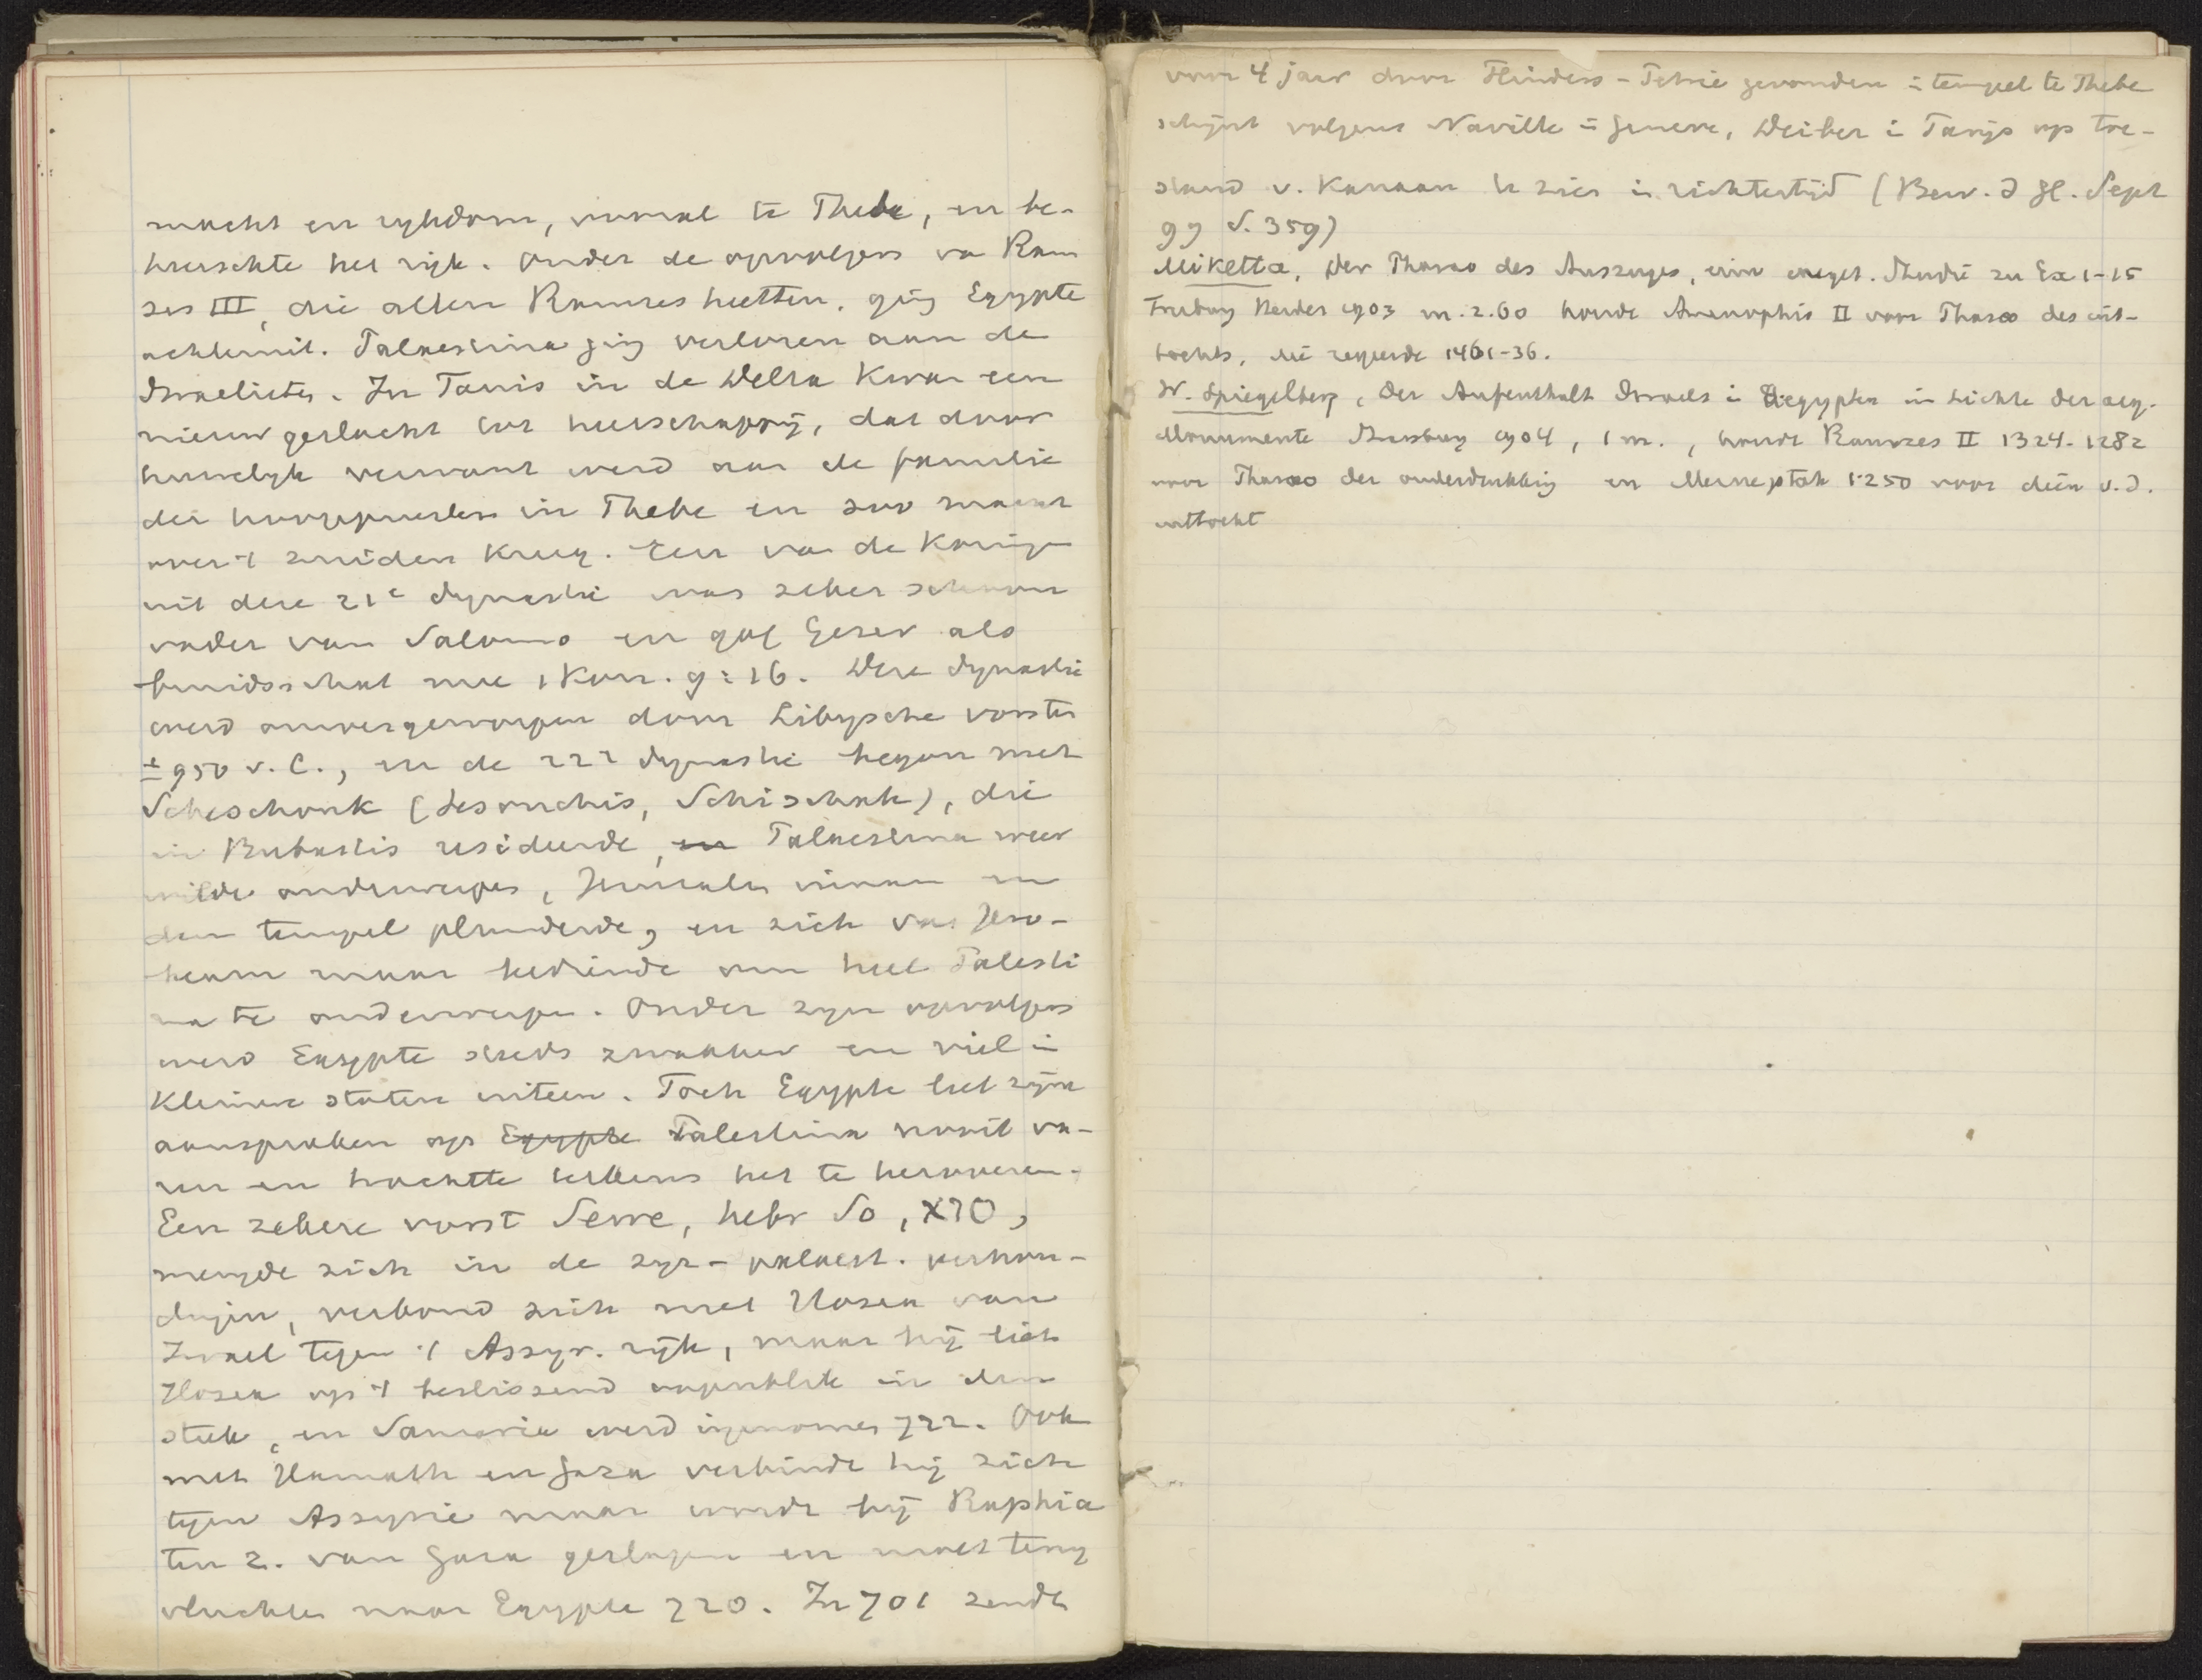 macht en rykdom, vooral te Thebe, en be-
heerschte het rijk. Onder de opvolgers va Ram
ses III, die allen Ramses heetten, ging Egypte
achteruit. Palaestina ging verloren aan de
Israelieten. In Tanis in de Delta kwam een
nieuw geslacht tot heerschappij, dat door
huwelyk verwant werd aan de familie
der hoogepriesters in Thebe en zoo macht
over 't zuiden kreeg. Een van de koningen
uit deze 21e dynastie was zeker schoon
vader van Salomo en gaf Gezer als
bruidsschat mee 1 Kon. 9:16. Deze dynastie
werd omvergeworpen door Libysche vorsten
± 950 v. C., en de 22e dynastie begon met
Scheschonk (Sesonchis, Schischak), die
in Bubastis resideerde, en Palaestina weer
wilde onderwerpen, Jeruzalem innam en
den tempel plunderde, en zich van Jero-
beam maar bediende om heel Palesti
na te onderwerpen. Onder zyn opvolgers
werd Egypte steeds zwakker en viel in
kleinere staten uiteen. Toch Egypte liet zijne
aanspraken op Egypte Palestina nooit va-
ren en trachtte telkens het te heroveren.
Een zekere vorst Sewe, hebr So, סוא,
mengde zich in de syr-palaest. verhou-
dingen, verbond zich met Hosea van
Israel tegen 't Assyr. rijk, maar hij liet
Hosea op 't beslissend oogenblik in den
steek, en Samaria werd ingenomen 722. Ook
met Hamath en Gaza verbindt hij zich
tegen Assyrie maar wordt bij Raphia
ten z. van Gaza geslagen en moet terug
vluchten naar Egypte 720. In 701 zendt
voor 4 jaar door Flinders-Petrie gevonden in tempel te Thebe
schijnt volgens Naville in Geneve, Weiber in Parijs op toe-
stand v. Kanaan te zien in richtertijd (Bew. d H. Sept
99 S. 359)
Miketta, Der Pharao des Auszuges, eine exeget. Studie zu Ex 1-15
Freiburg Herder 1903 m. 2.60 houdt Amenophis II voor Pharao des uit-
tochts, die regeerde 1461-36.
W. Spiegelberg, Der Aufenthalt Israels in Aegypten im Lichte der aeg.
Monumente Strasburg 1904, 1 m., houdt Ramses II 1324-1282
voor Pharao der onderdrukking en Merneptah 1250 voor dien v. d.
uittocht